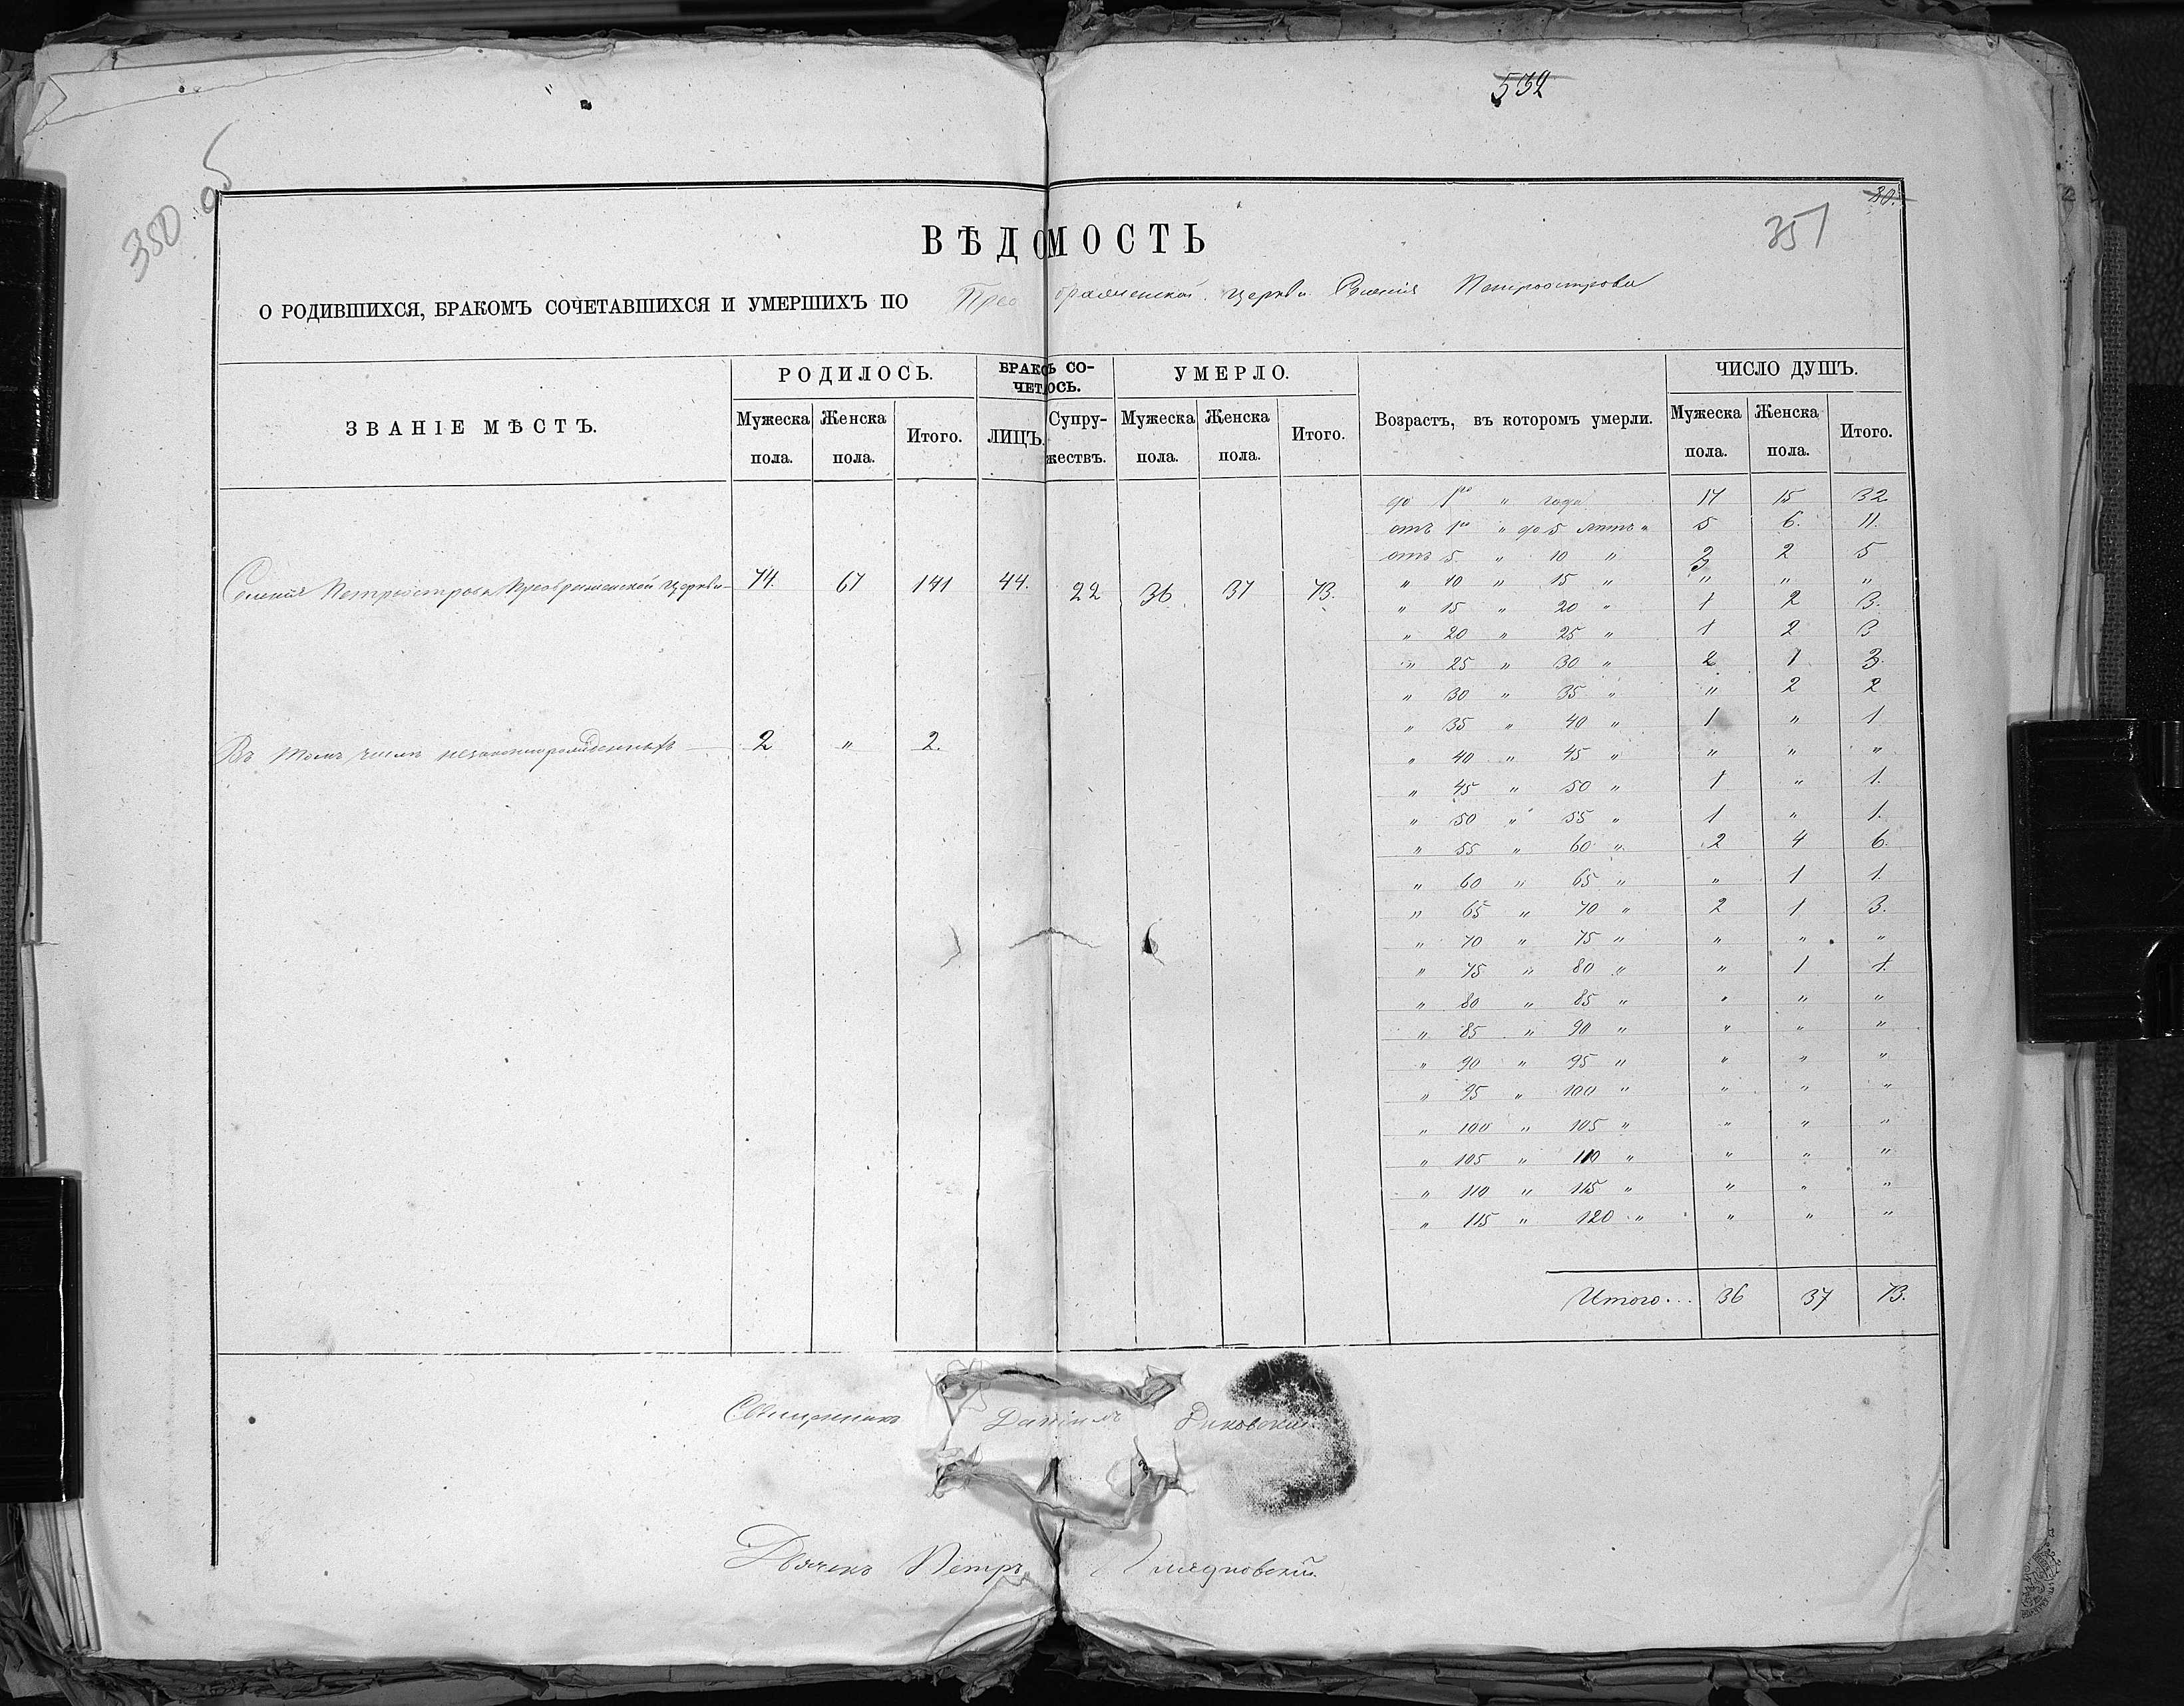 532
350 об
30.
351
ВѢДОМОСТЬ
О РОДИВШИХСЯ, БРАКОМЪ СОЧЕТАВШИХСЯ И УМЕРШИХЪ ПО Преображенской церкви Селенія Петроострова
ЗВАНІЕ МѢСТЪ. РОДИЛОСЬ. БРАКОМЪ СО- УМЕРЛО. Возрастъ, въ которомъ умерли. ЧИСЛО ДУШЪ.
ЧЕТАЛОСЬ.
Мужеска Женска Итого. ЛИЦЪ. Супру- Мужеска Женска Итого. Мужеска Женска Итого.
пола. пола. жествъ. пола. пола. пола. пола.
до 1го " года 17 15 32
отъ 1го " до 5 лѣтъ " 5 6. 11.
отъ 5. " 10 " 3 2 5
Селенія Петроострова Преображенской церкви 74. 67 141 44. 22 36. 37 73.
" 10 " 15 " " " "
" 15 " 20 " 1 2 3.
" 20 " 25 " 1 2 3
" 25 " 30 " 2 1 3.
" 30 " 35 " " 2 2
" 35 " 40 " 1 " 1
Въ томъ числѣ незаконнорожденныхъ 2 " 2.
" 40 " 45 " " " "
" 45 " 50 " 1 " 1.
" 50 " 55 " 1 " 1.
" 55 " 60 " 2 4 6.
" 60 " 65 " " 1 1.
" 65 " 70 " 2 1 3.
" 70 " 75 " " " "
" 75 " 80 " " 1 1.
" 80 " 85 " " " "
" 85 " 90 " " " "
" 90 " 95 " " " "
" 95 " 100 " " " "
" 100 " 105 " " " "
" 105 " 110 " " " "
" 110 " 115 " " " "
" 115 " 120 " " " "
Итого... 36 37 73.
Священникъ Даніилъ
Дьячекъ Петръ